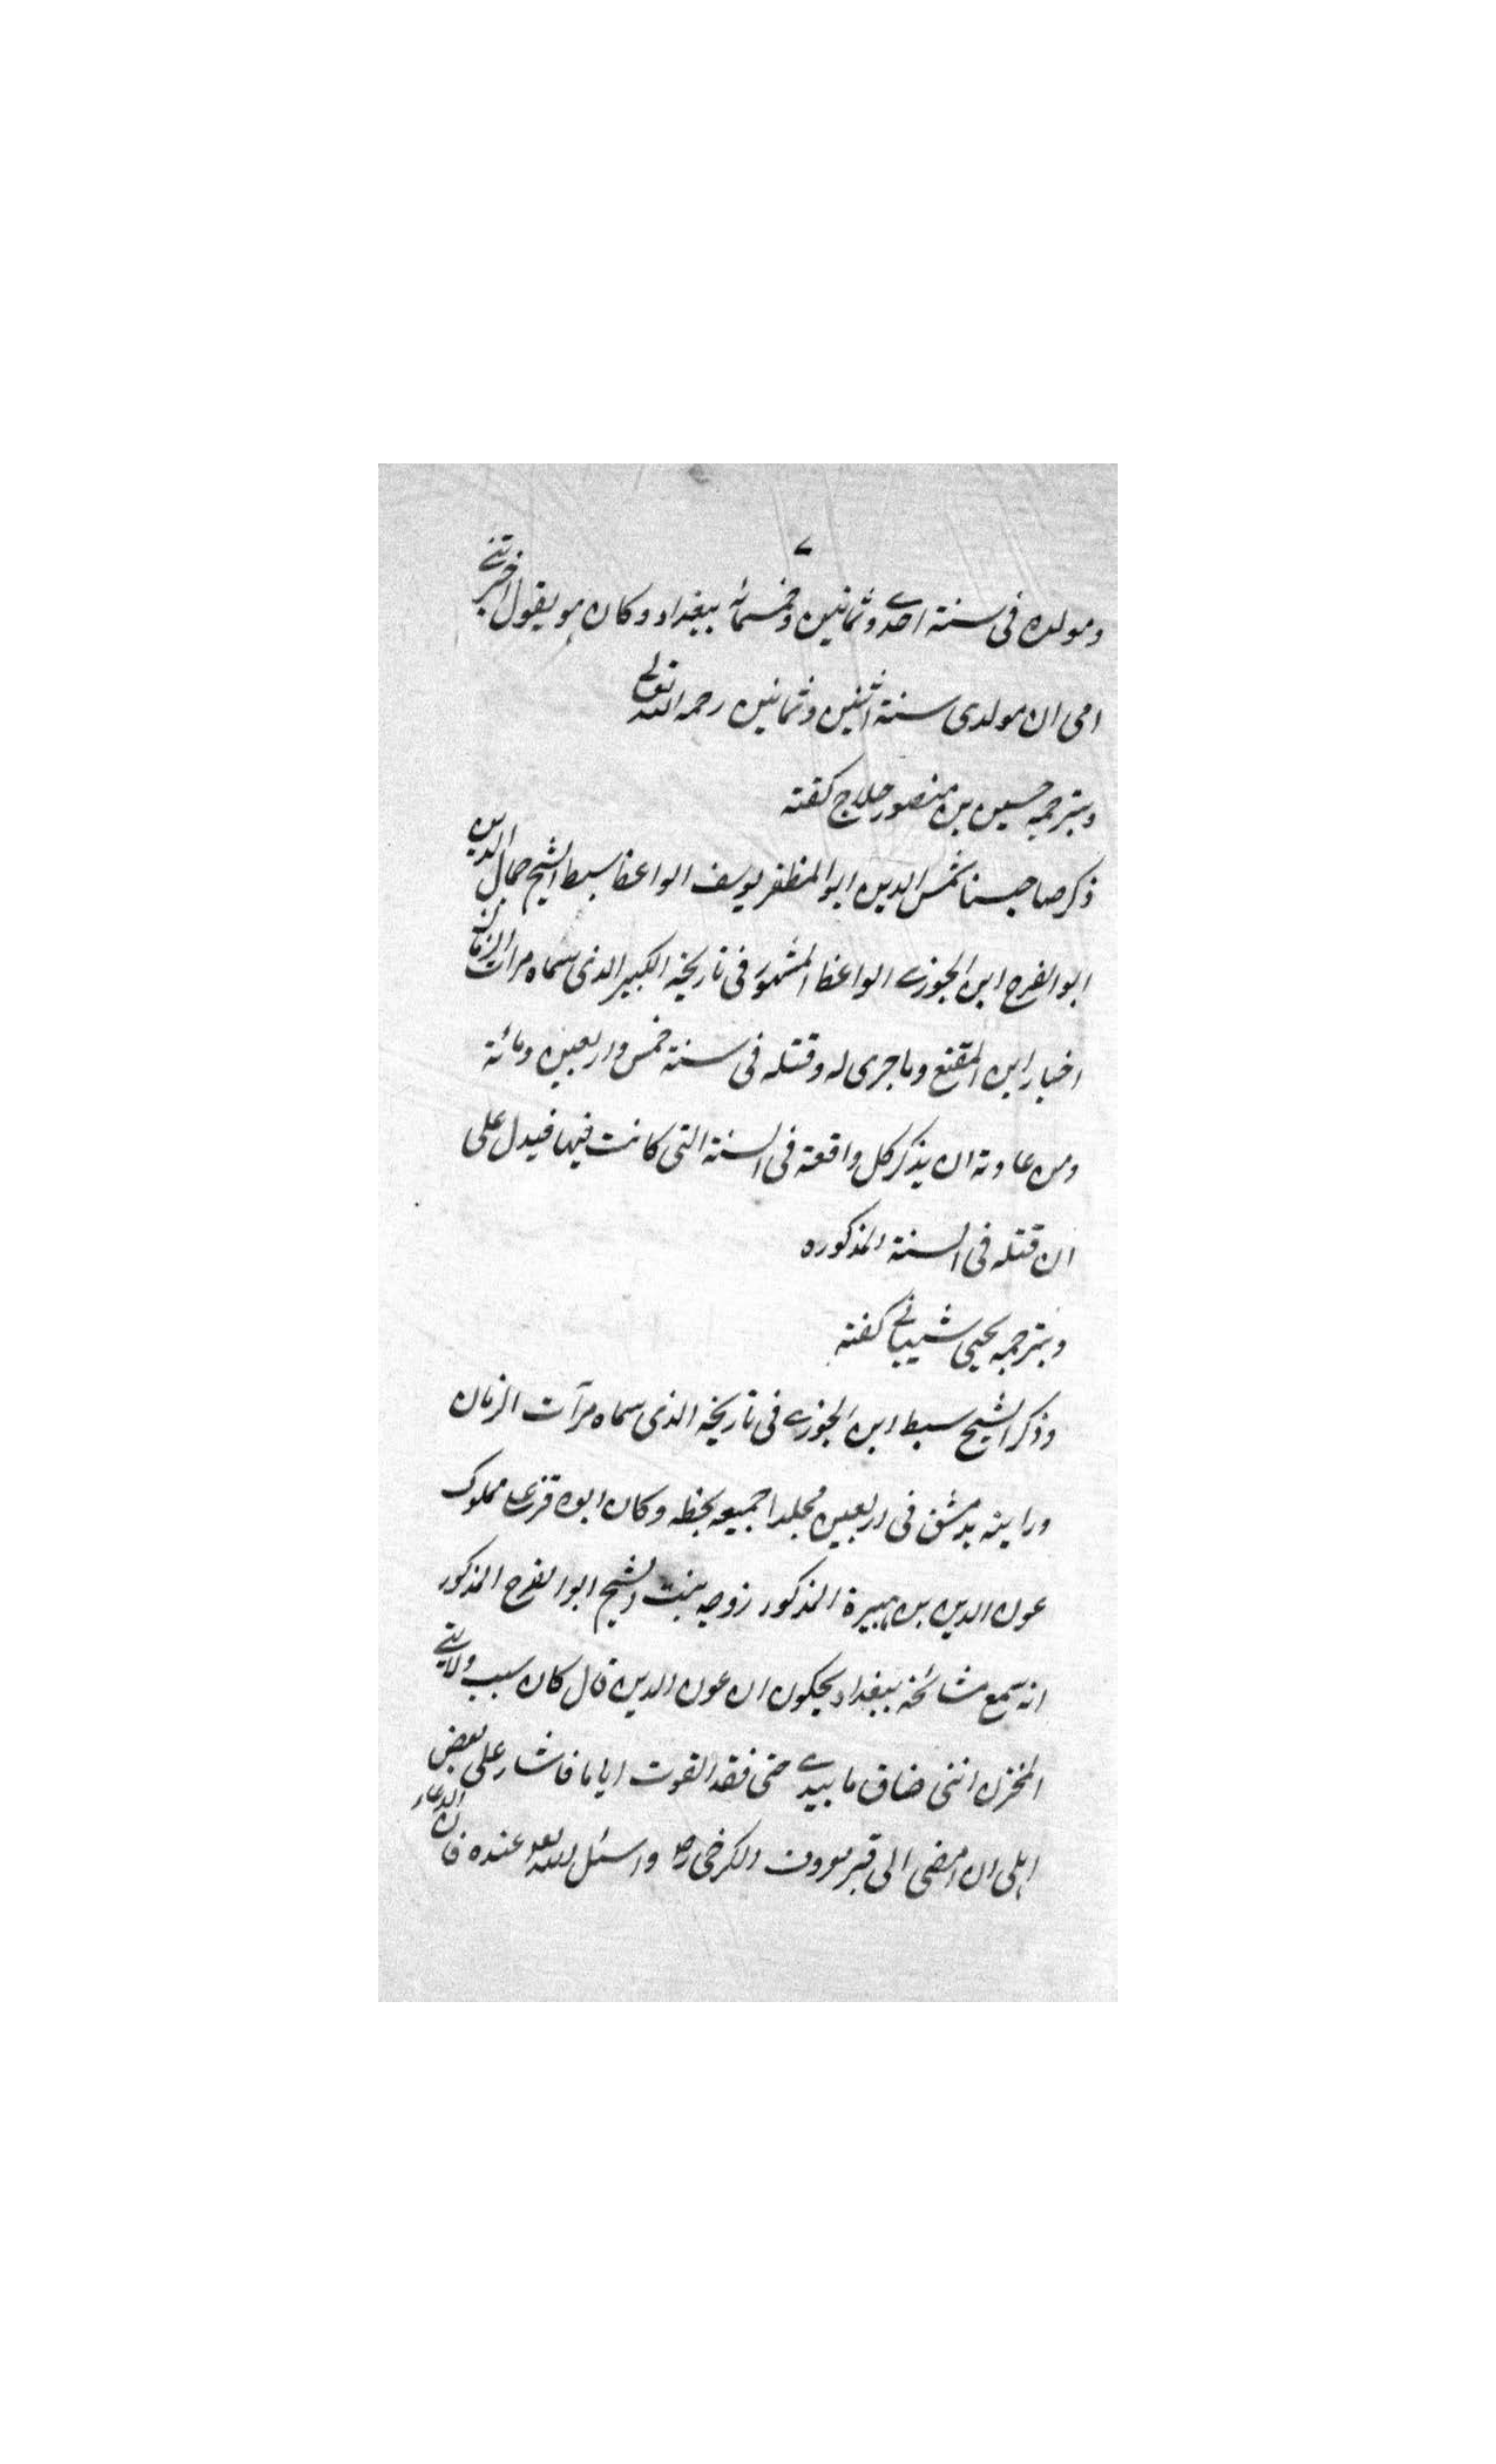 ومولده فى سنة احدے وثمانين وخمسمائه ببغداد وكان هو يقول اخبرتنے
امى ان مولدى سنة اثنين وثمانين رحمه الله تعالے
وبترجمه حسين بن منصور حلاج گفته
ذكر صاحبنا شمس الدين ابو المظفر يوسف الواعظ سبط الشيخ جمال الدين
ابو الفرج ابن الجوزے الواعظ المشهور فى تاريخه الكبير الذى سماه مرات الزمان
اخبار ابن المقنع وما جرى له وقتله فى سنة خمس واربعين ومائة
ومن عادته ان يذكر كل واقعة فى السنة التى كانت فيها فيدل على
ان قتله فى السنة المذكوره
وبترجمه يحيى شيبانے گفته
وذكر الشيخ سبط ابن الجوزے فى تاريخه الذى سماه مرآت الزمان
ورايته بدمشق فى اربعين مجلدا جميعه بخطه وكان ابوه قزغلى مملوك
عون الدين بن هبيرة المذكور زوجه بنت الشيخ ابو الفرج المذكور
انه سمع مشائخه ببغداد يحكون ان عون الدين قال كان سبب ولايتے
المخزن اننى ضاق ما بيدے حتى فقد القوت اياما فاشار على بعض
اهلى ان امضى الى قبر معروف الكرخى رض واسئل الله تعالى عنده فان الدعاء